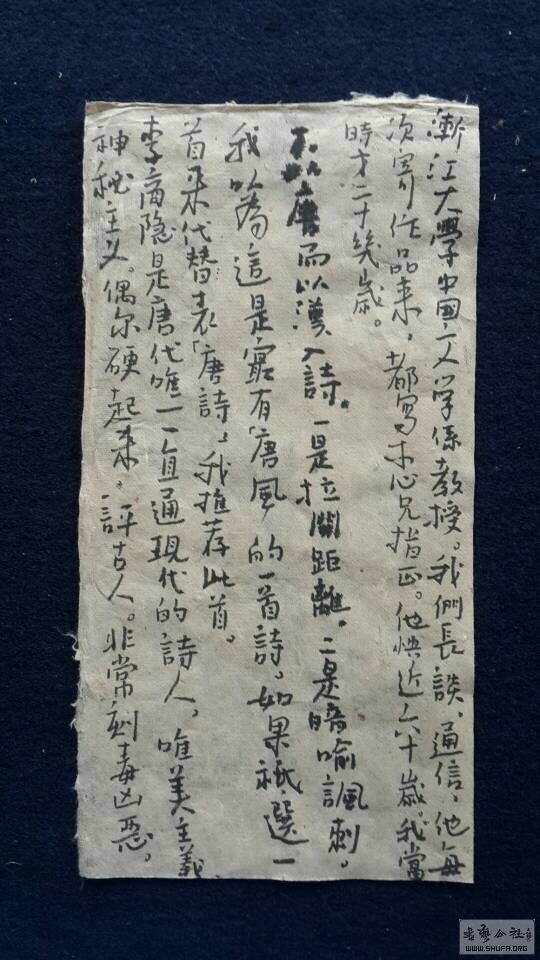 漸江大學中国文学係教授。我們長談，通信，他每
次寄作品来，都寫木心兄指正。他快近六十歲。我當
時才二十幾歲。
不以唐而以漢入詩。一是拉開距離。二是暗喻諷刺。
我以為這是最有「唐風」的一首詩。如果衹選一
首来代替表「唐詩」，我推荐此首。
李商隐是唐代唯一一直通現代的詩人。唯美主義，
神秘主义。偶尔硬起来，評古人。非常刻毒凶惡。
WWW.SHUFA.ORG